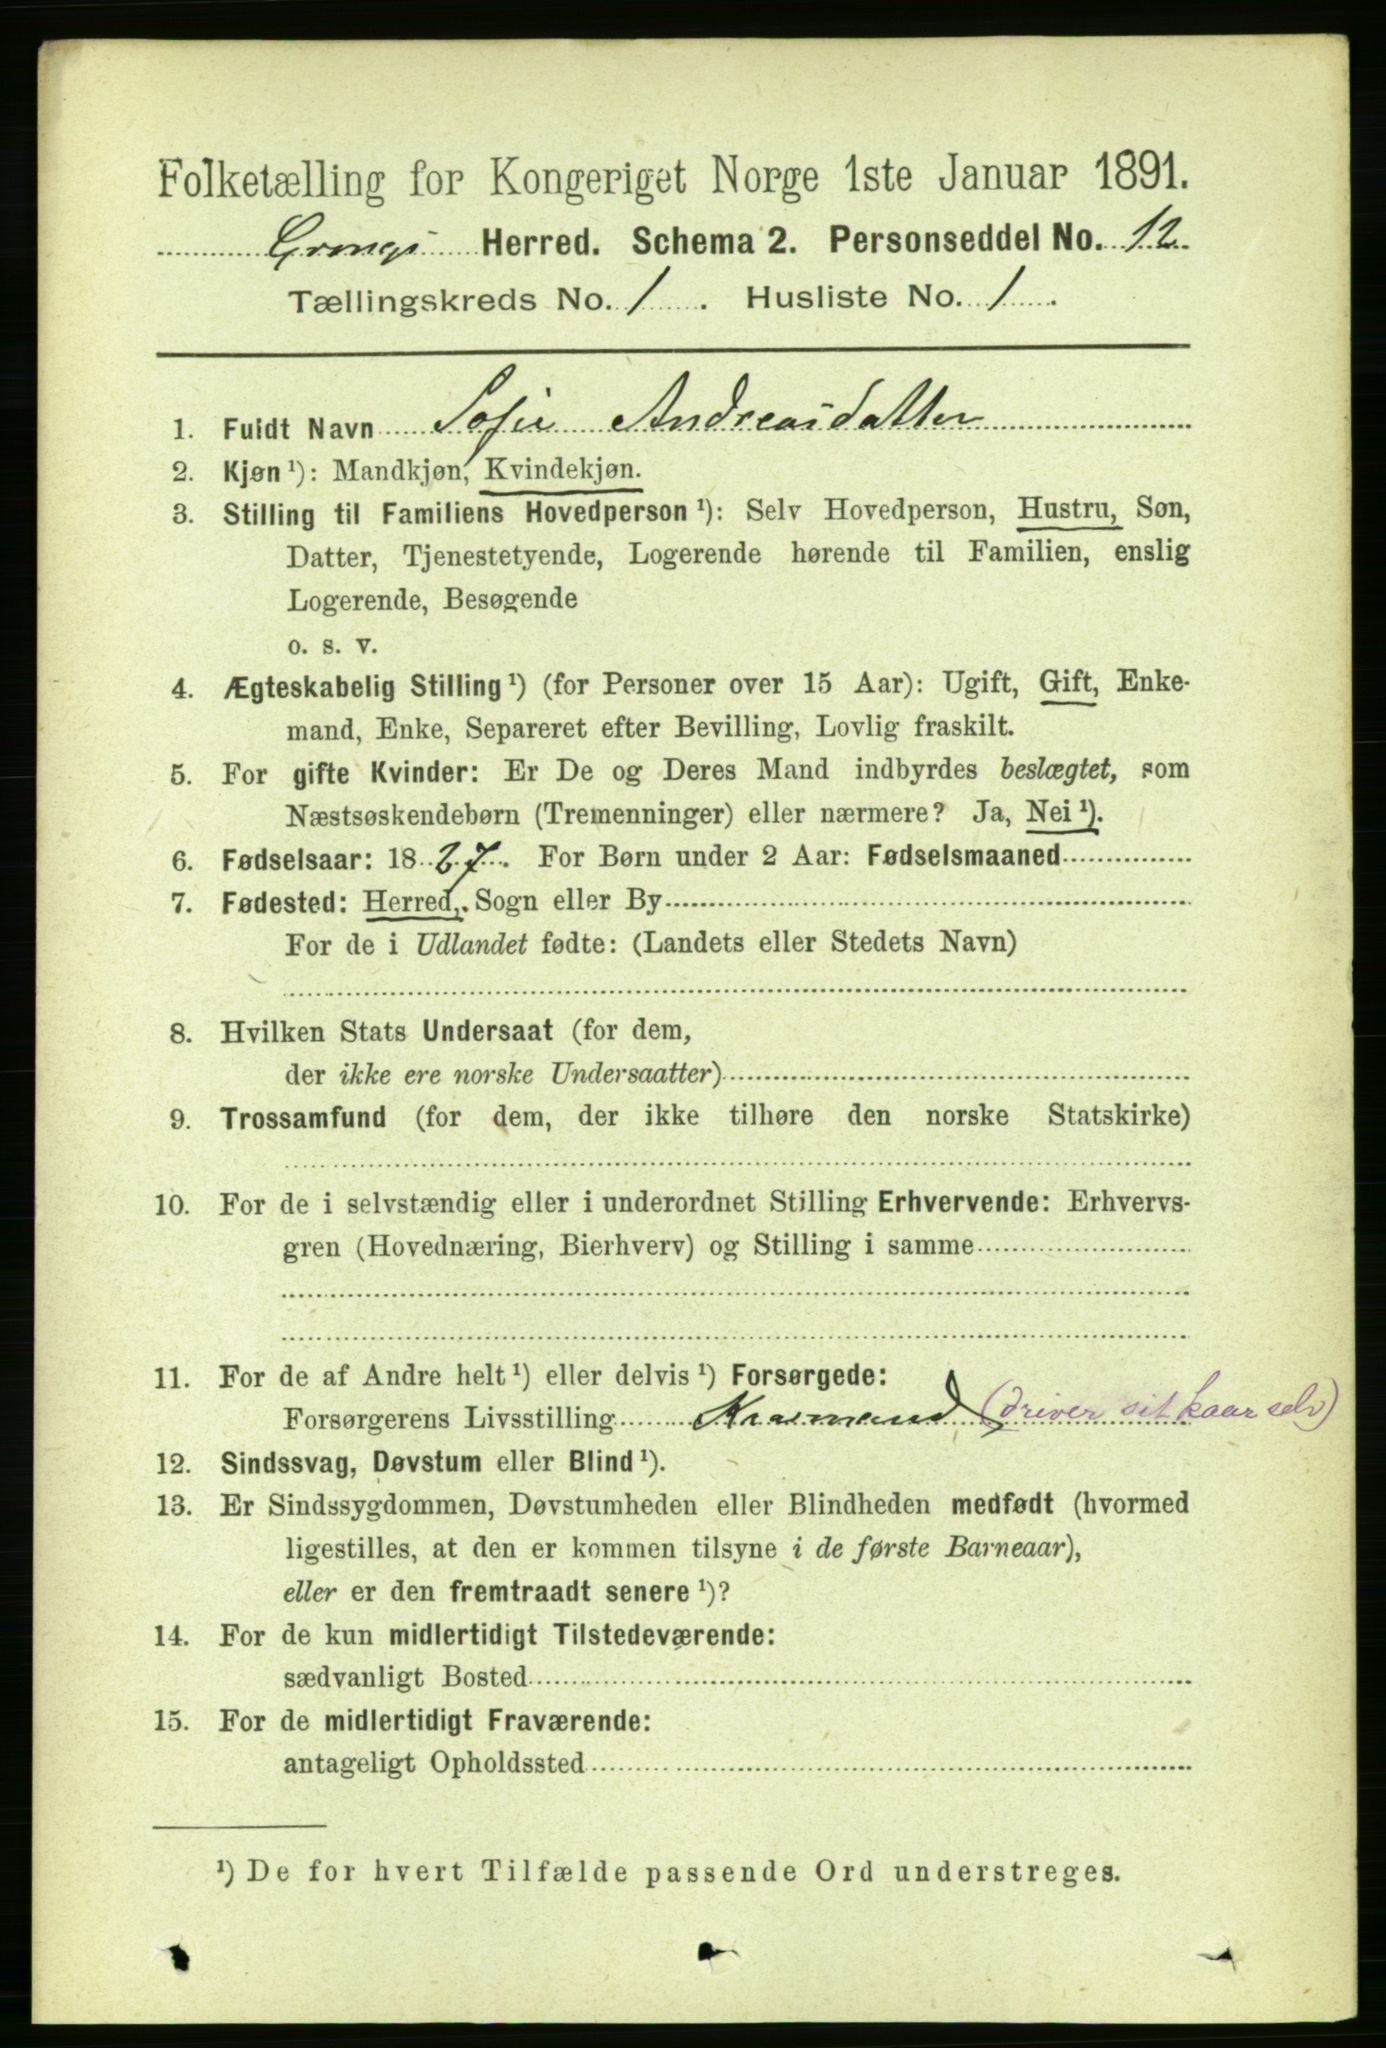 Folketælling for Kongeriget Norge 1ste Januar 1891.
Grong Herred. Schema 2. Personseddel No. 12.
Tællingskreds No. 1. Husliste No. 1.
1. Fuldt Navn Sofie Andreasdatter
2. Kjøn ¹): Mandkjøn, Kvindekjøn.
3. Stilling til Familiens Hovedperson ¹): Selv Hovedperson, Hustru, Søn,
Datter, Tjenestetyende, Logerende hørende til Familien, enslig
Logerende, Besøgende
o. s. v.
4. Ægteskabelig Stilling ¹) (for Personer over 15 Aar): Ugift, Gift, Enke-
mand, Enke, Separeret efter Bevilling, Lovlig fraskilt.
5. For gifte Kvinder: Er De og Deres Mand indbyrdes beslægtet, som
Næstsøskendebørn (Tremenninger) eller nærmere? Ja, Nei ¹).
6. Fødselsaar: 1827. For Børn under 2 Aar: Fødselsmaaned
7. Fødested: Herred, Sogn eller By
For de i Udlandet fødte: (Landets eller Stedets Navn)
8. Hvilken Stats Undersaat (for dem,
der ikke ere norske Undersaatter)
9. Trossamfund (for dem, der ikke tilhøre den norske Statskirke)
10. For de i selvstændig eller i underordnet Stilling Erhvervende: Erhvervs-
gren (Hovednæring, Bierhverv) og Stilling i samme
11. For de af Andre helt ¹) eller delvis ¹) Forsørgede:
Forsørgerens Livsstilling Kaarmand (driver sit kaar selv)
12. Sindssvag, Døvstum eller Blind ¹).
13. Er Sindssygdommen, Døvstumheden eller Blindheden medfødt (hvormed
ligestilles, at den er kommen tilsyne i de første Barneaar),
eller er den fremtraadt senere ¹)?
14. For de kun midlertidigt Tilstedeværende:
sædvanligt Bosted
15. For de midlertidigt Fraværende:
antageligt Opholdssted
¹) De for hvert Tilfælde passende Ord understreges.